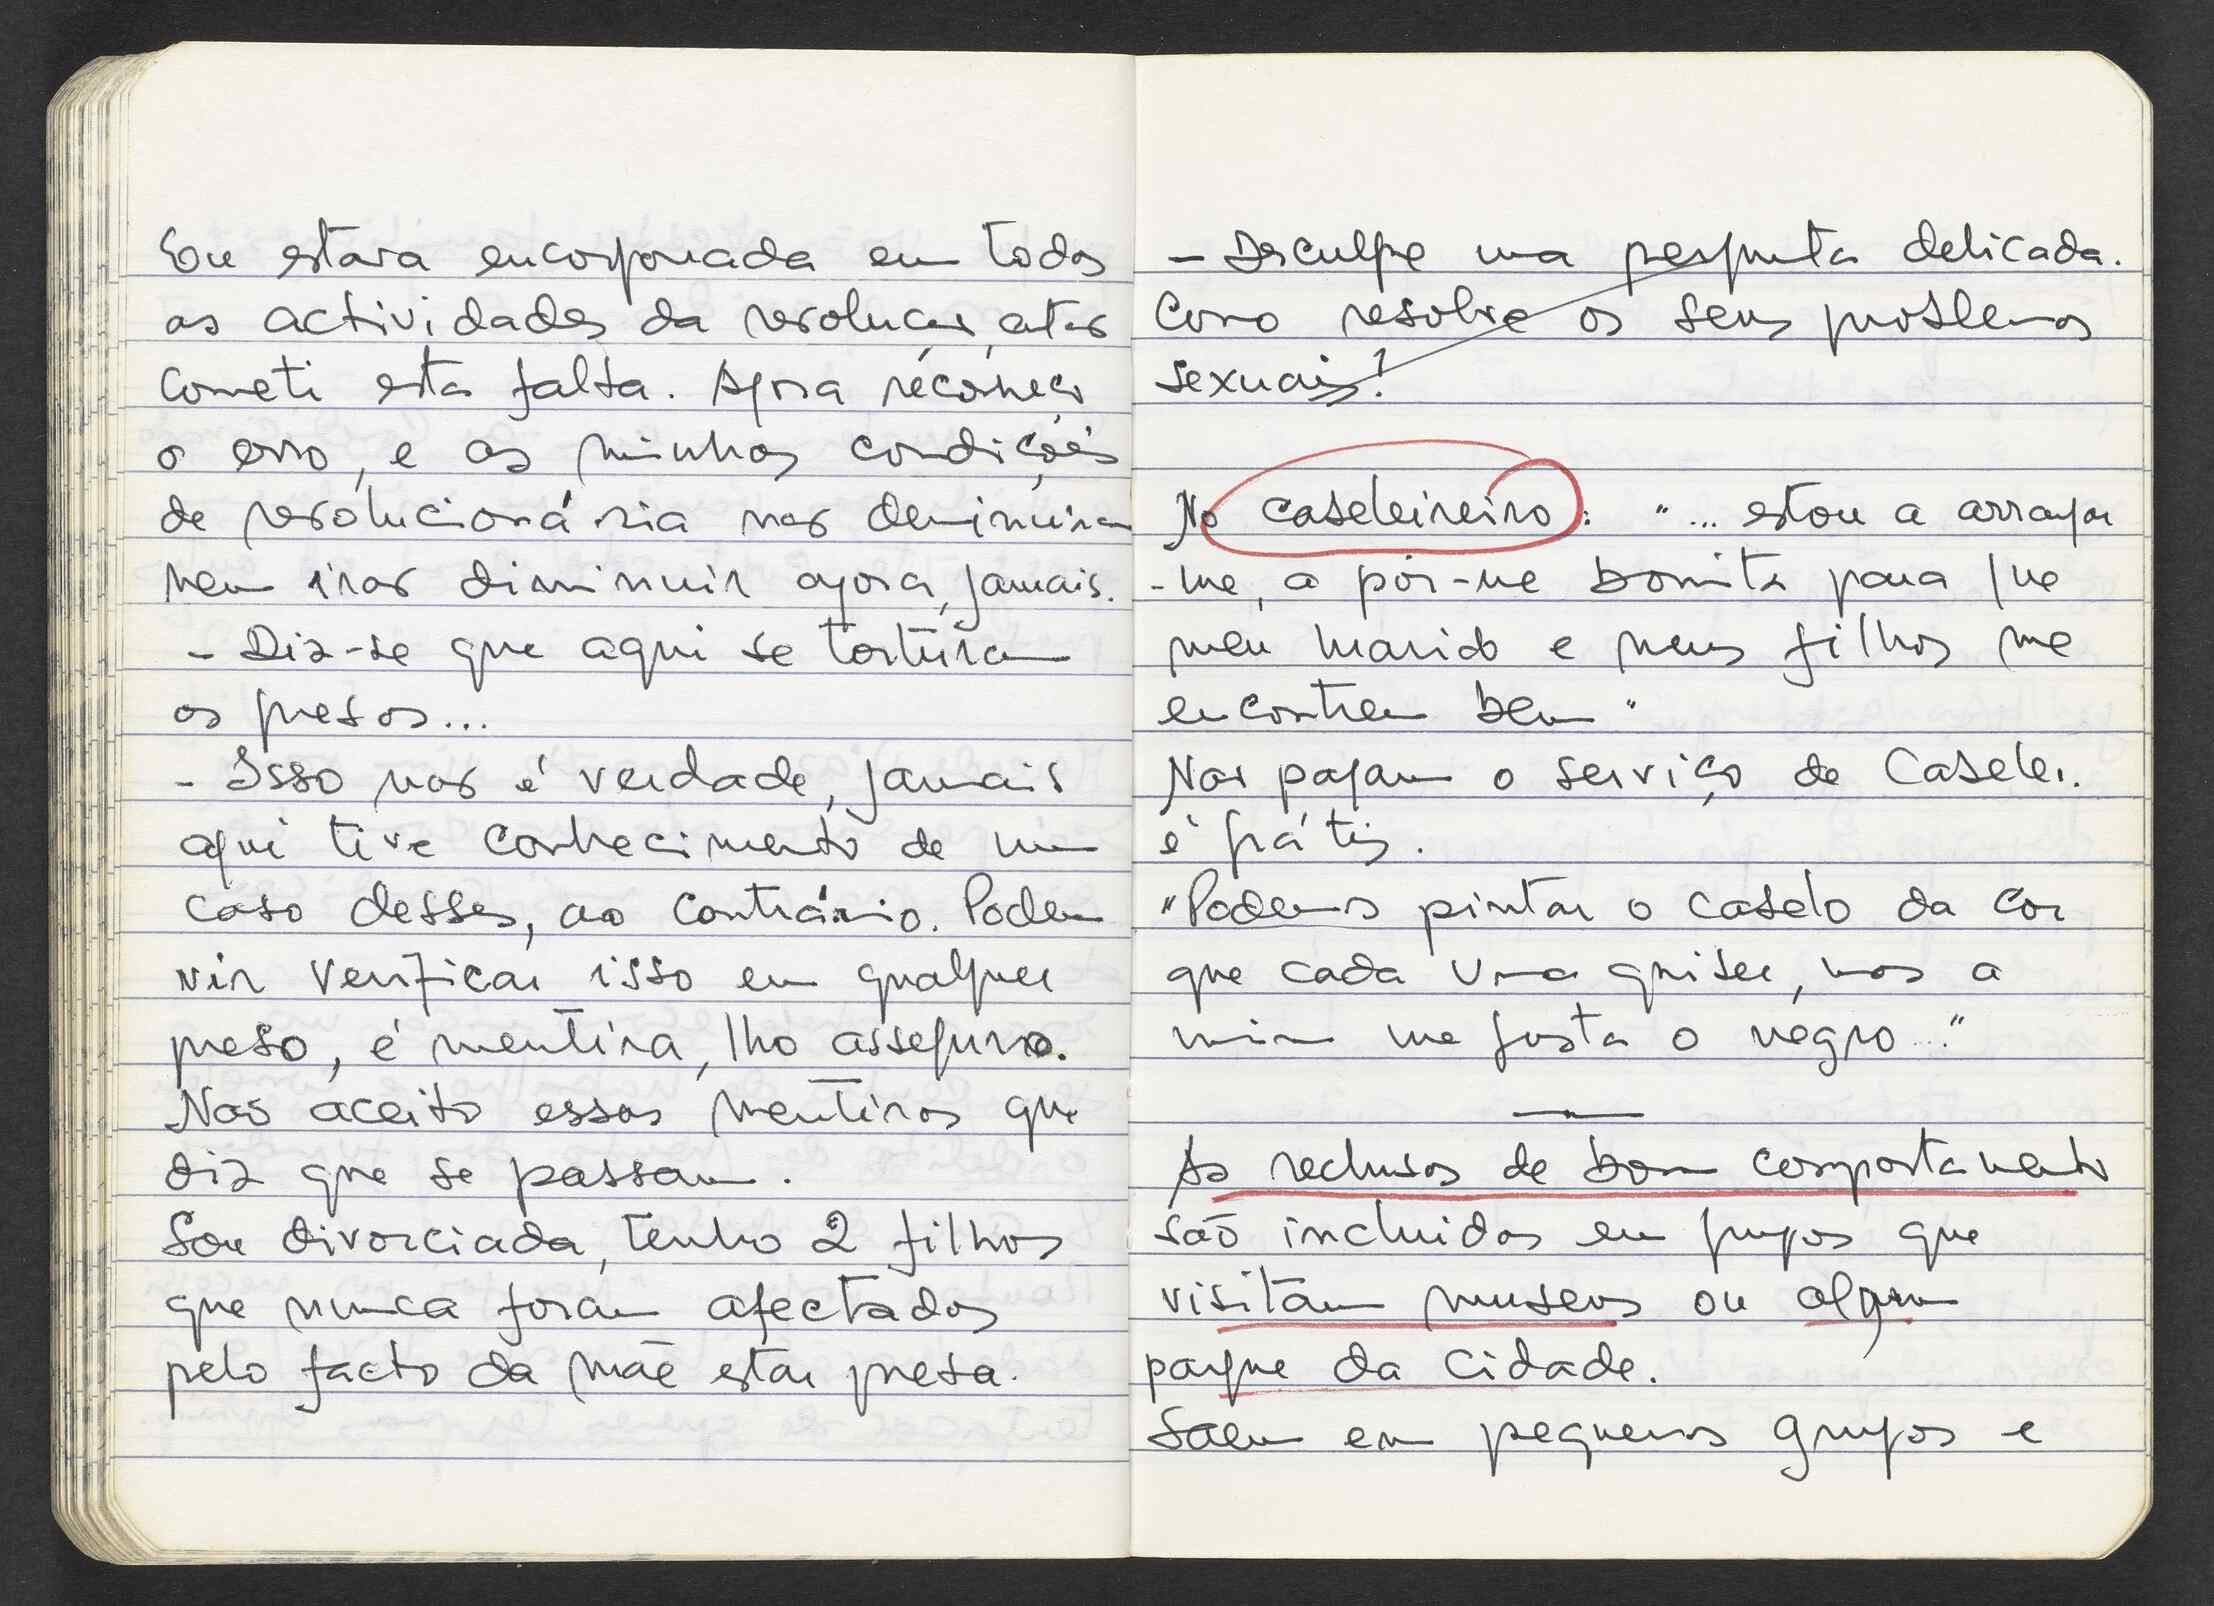 Eu estava encorporada em todas
as actividades da revolução, antes
cometi esta falta. Agora reconheço
o erro, e as minhas condições
de revolucionária não deminuiram
nem irão diminuir agora, jamais.
- Diz-se que aqui se torturam
os presos...
- Isso não é verdade, jamais
aqui tive conhecimento de um
caso desses, ao contrário. Podem
vir verificar isso em qualquer
preso, é mentira, lho asseguro.
Não aceito essas mentiras que
diz que se passam.
Sou divorciada, tenho 2 filhos
que nunca foram afectados
pelo facto da mãe estar presa.
- Desculpe uma pergunta delicada.
Como resolve os seus problemas
sexuais?
No cabeleireiro: "... estou a arranjar
-me, a pôr-me bonita para que
meu marido e meus filhos me
encontrem bem"
Não pagam o serviço de Cabelei.
é grátis.
"Podemos pintar o cabelo da cor
que cada uma quiser, mas a
mim me gusta o negro..."
As reclusas de bom comportamento
são incluidas em grupos que
visitam museus ou algum
parque da cidade.
Saem em pequenos grupos e